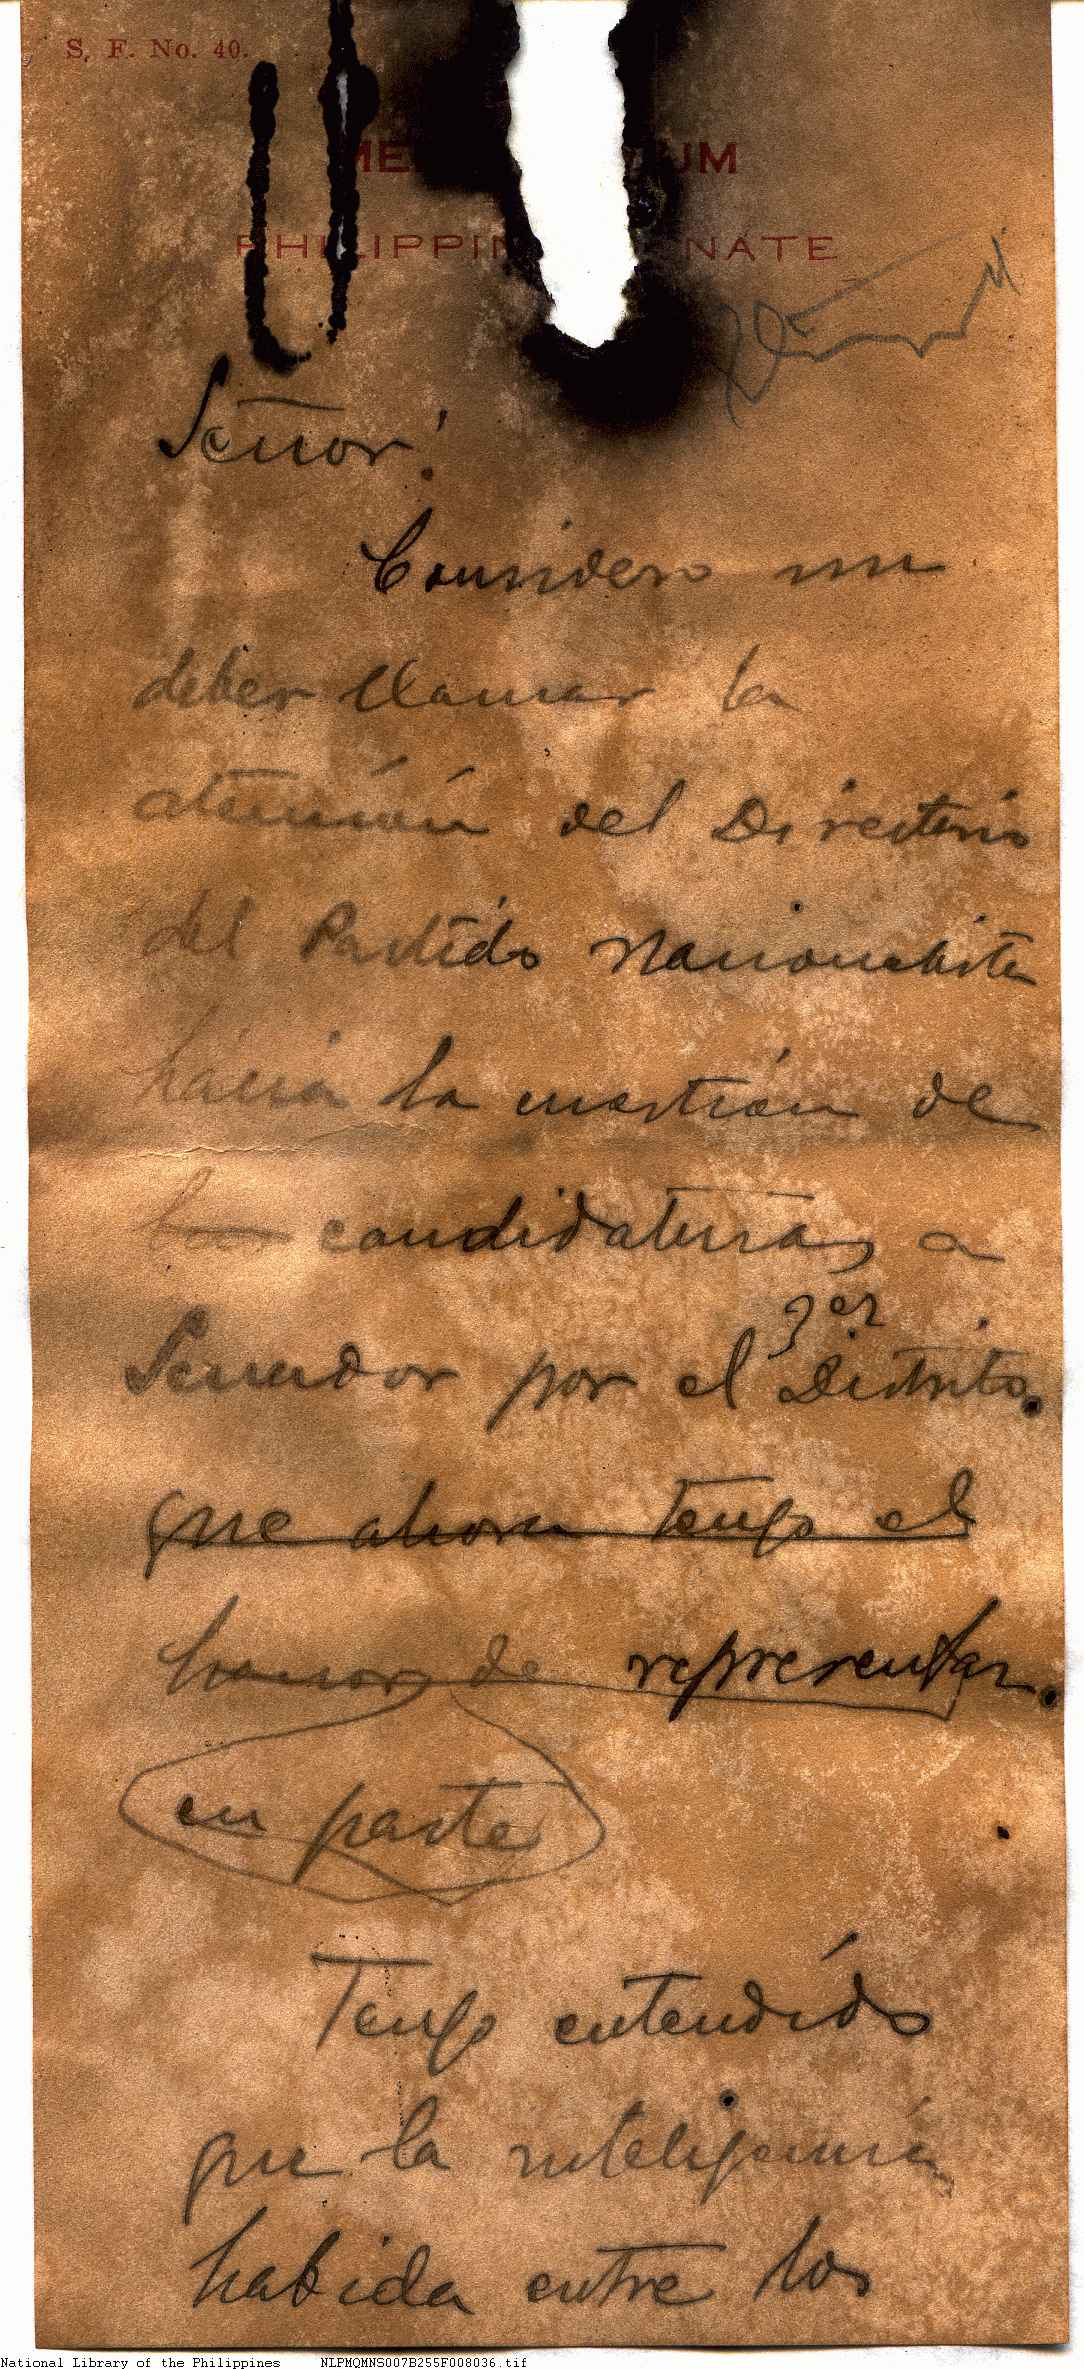 S. F. No. 40.
ME UM
PHILIPPIN NATE
Señor!
Considero mi
deber llamar la
atención del Directorio
del Partido Nacionalista
hacia la cuestión de
las candidaturas a
3er
Senador por el Distrito.
que ahora tengo el
honor de representar.
en parte
Tengo entendido
que la inteligencia
habida entre los
National Library of the Philippines NLPMQMNS007B255F008036.tif